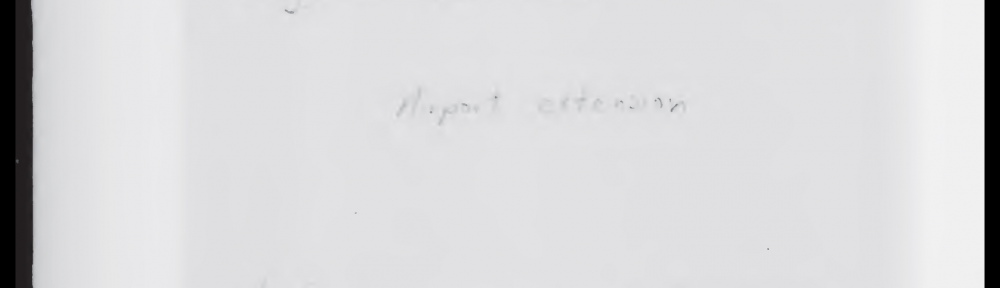 Airport extension